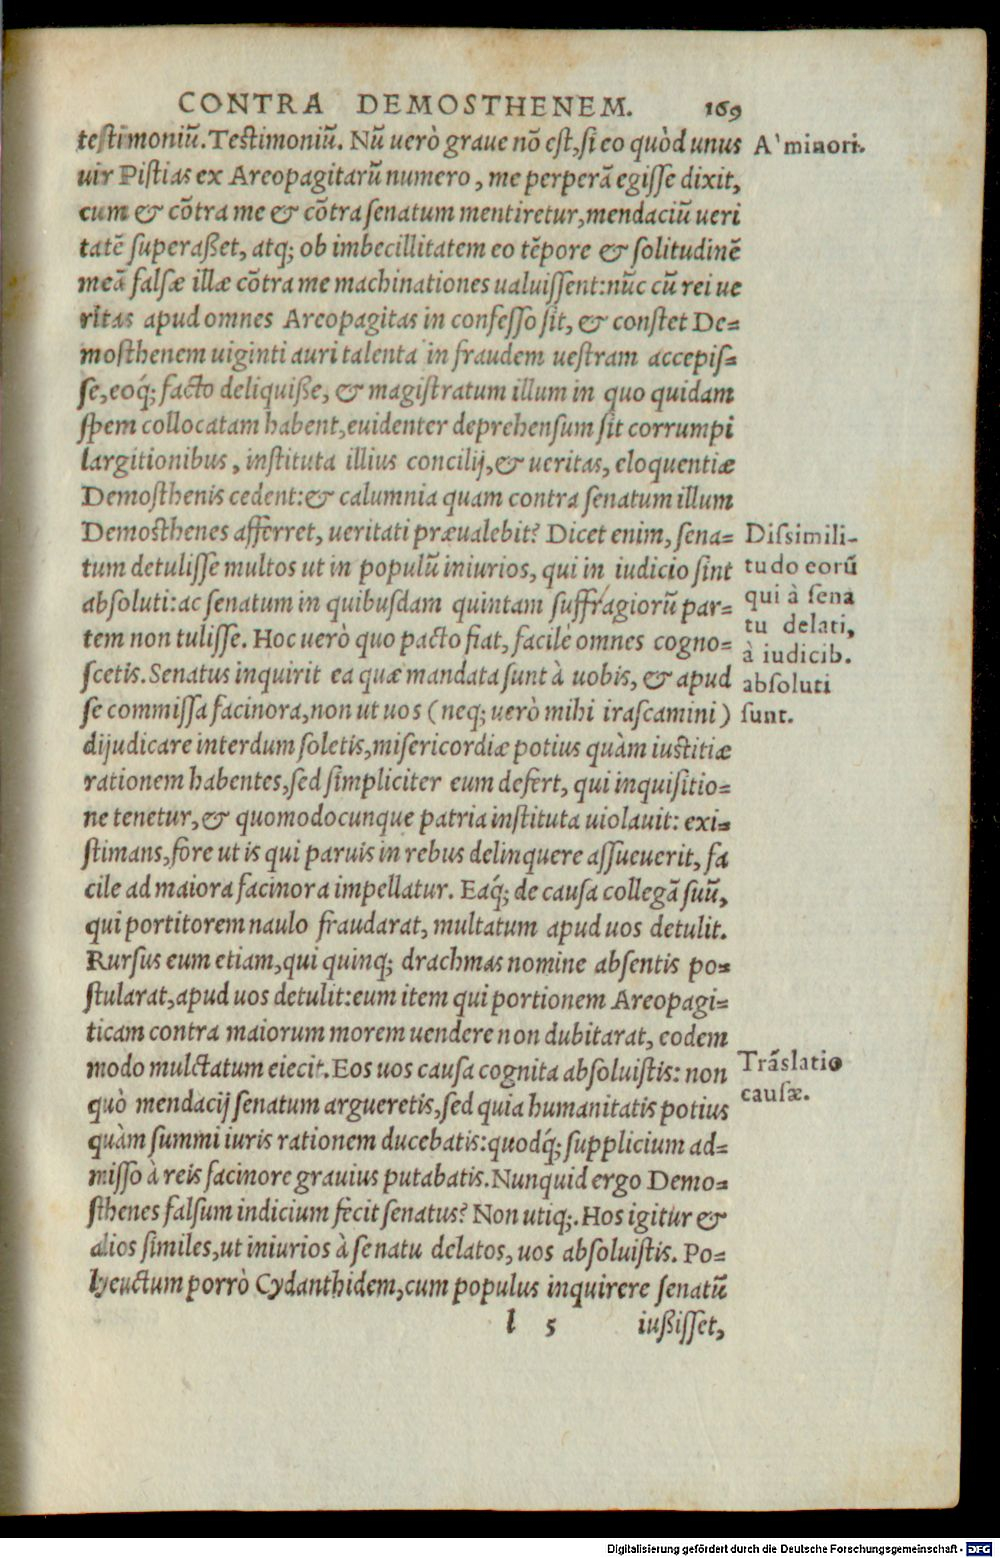 CONTRA DEMOSTHENEM. 169
testimoniũ. Testimoniũ. Nũ uerò graue nõ est, si eo quòd unus
A' minori.
uir Pistias ex Areopagitarũ numero, me perperã egisse dixit,
cum & cõtra me & cõtra senatum mentiretur, mendaciũ ueri
tatẽ superaßet, atq; ob imbecillitatem eo tẽpore & solitudinẽ
meã falsæ illæ cõtra me machinationes ualuissent: nũc cũ rei ue
ritas apud omnes Areopagitas in confesso sit, & constet De=
mosthenem uiginti auri talenta in fraudem uestram accepis=
se, eoq́; facto deliquiße, & magistratum illum in quo quidam
spem collocatam habent, euidenter deprehensum sit corrumpi
largitionibus, instituta illius concilij, & ueritas, eloquentiæ
Demosthenis cedent: & calumnia quam contra senatum illum
Demosthenes afferret, ueritati præualebit? Dicet enim, sena=
tum detulisse multos ut in populũ iniurios, qui in iudicio sint
absoluti: ac senatum in quibusdam quintam suffragiorũ par=
tem non tulisse. Hoc uerò quo pacto fiat, facilè omnes cogno=
scetis. Senatus inquirit ea quæ mandata sunt à uobis, & apud
se commissa facinora, non ut uos (neq; uerò mihi irascamini)
Dissimili-
tudo eorũ
qui à sena
tu delati,
à iudicib.
absoluti
sunt.
dijudicare interdum soletis, misericordiæ potius quàm iustitiæ
rationem habentes, sed simpliciter eum defert, qui inquisitio=
ne tenetur, & quomodocunque patria instituta uiolauit: exi=
stimans, fore ut is qui paruis in rebus delinquere assueuerit, fa
cile ad maiora facinora impellatur. Eaq́; de causa collegã suũ,
qui portitorem naulo fraudarat, multatum apud uos detulit.
Rursus eum etiam, qui quinq; drachmas nomine absentis po=
stularat, apud uos detulit: eum item qui portionem Areopagi=
ticam contra maiorum morem uendere non dubitarat, eodem
modo mulctatum eiecit. Eos uos causa cognita absoluistis: non
quò mendacij senatum argueretis, sed quia humanitatis potius
Trãslatio
causæ.
quàm summi iuris rationem ducebatis: quodq́; supplicium ad=
misso à reis facinore grauius putabatis. Nunquid ergo Demo=
sthenes falsum indicium fecit senatus? Non utiq;. Hos igitur &
alios similes, ut iniurios à senatu delatos, uos absoluistis. Po=
lyeuctum porrò Cydanthidem, cum populus inquirere senatũ
l 5 iußisset,
Digitalisierung gefördert durch die Deutsche Forschungsgemeinschaft - DFG